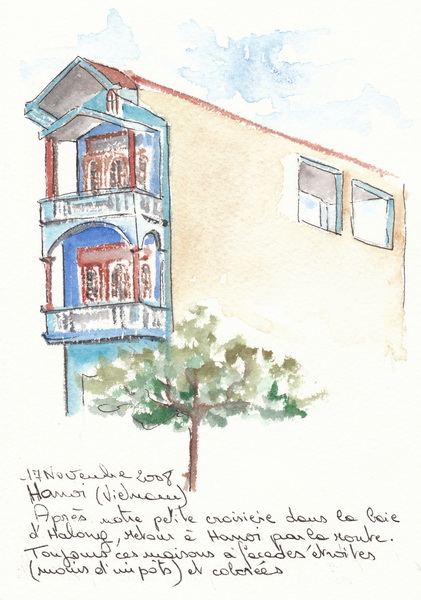 17 Novembre 2008
Hanoi (Vietnam)
Après notre petite croisière dans la baie
d'Halong, retour à Hanoi par la route.
Toujours ces maisons à façades étroites
(moins d'impôts) et colorées